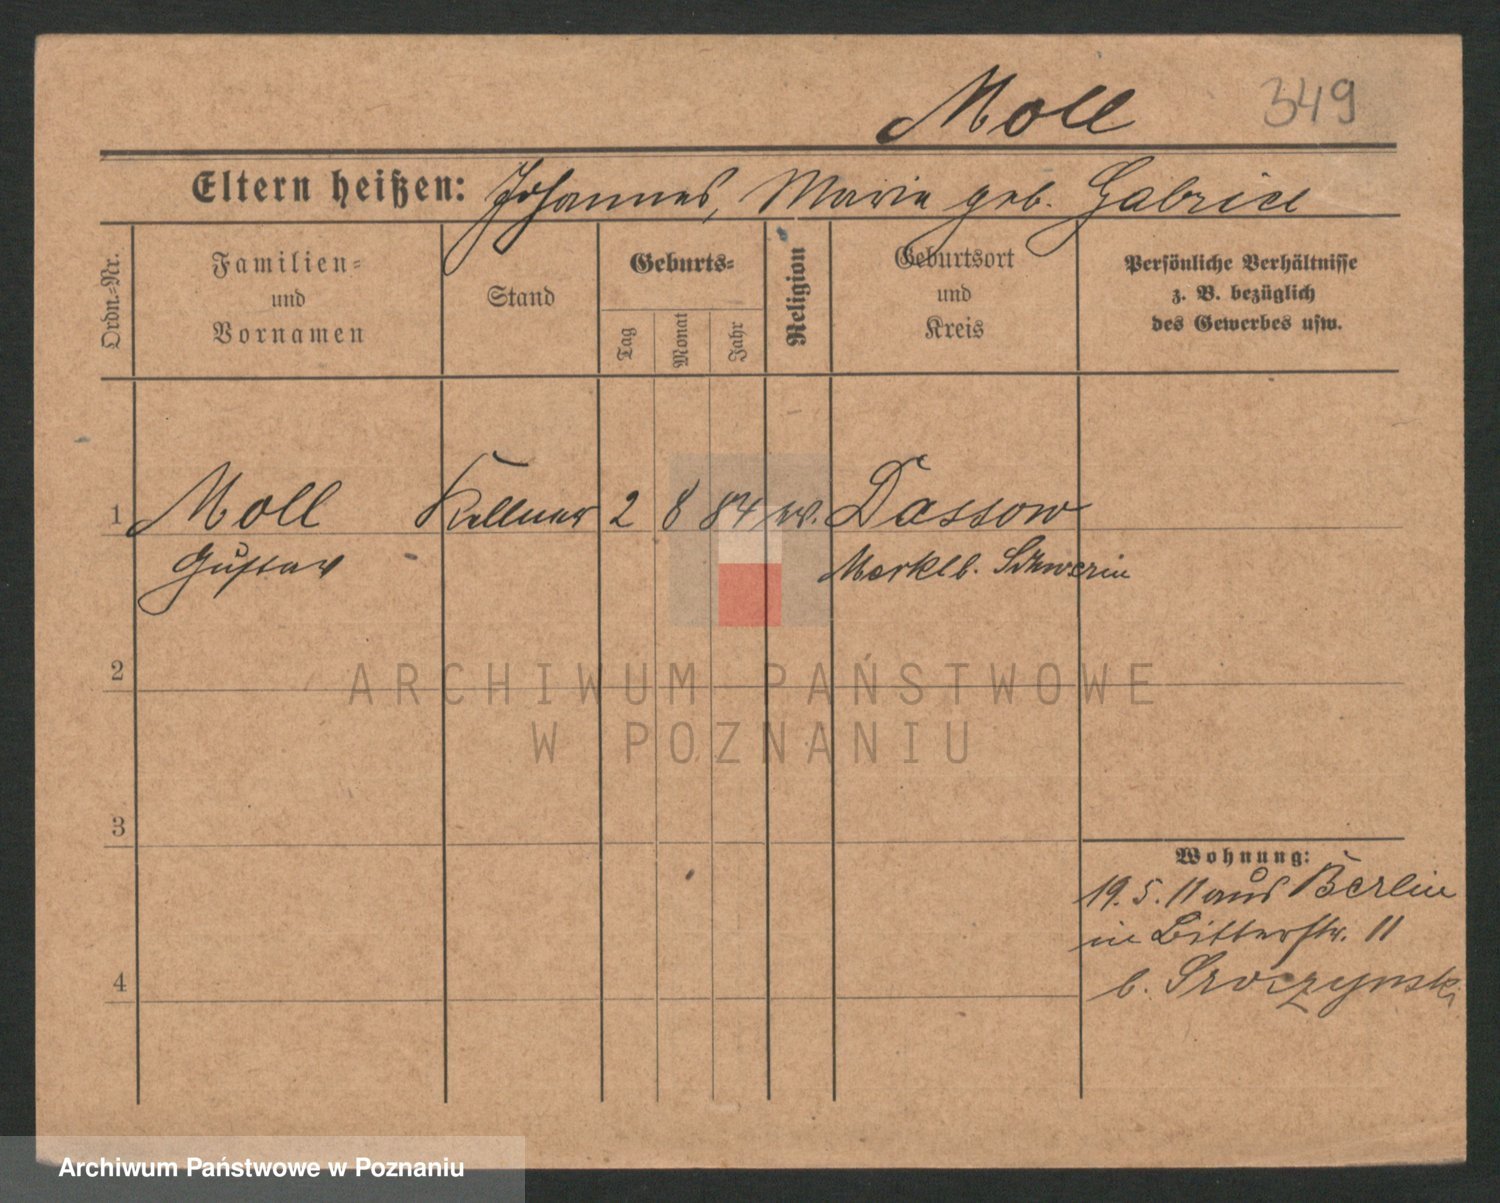 Moll 349
Eltern heißen: Johannes, Marie geb. Gabriel
Ordn.-Nr.
Familien-
und
Vornamen
Stand
Geburts-
Tag
Monat
Jahr
Religion
Geburtsort
und
Kreis
Persönliche Verhältnisse
z. B. bezüglich
des Gewerbes usw.
1 Moll Kellner 2 8 84 ev. Dassow
Gustav Mecklb. Schwerin
2
3
4
Wohnung:
19.5.11 aus Berlin
in Bitterstr. 11
b. Sroczynski
ARCHIWUM PAŃSTWOWE
W POZNANIU
Archiwum Państwowe w Poznaniu